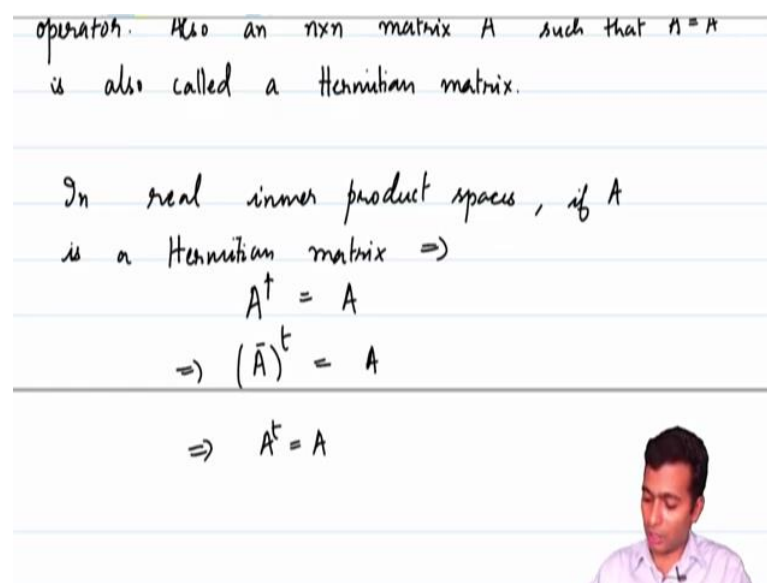 operator. Also an n×n matrix A such that A = A
is also called a Hermitian matrix.
In real inner product spaces, if A
is a Hermitian matrix ⇒
A† = A
⇒ (Ā)ᵗ = A
⇒ Aᵗ = A